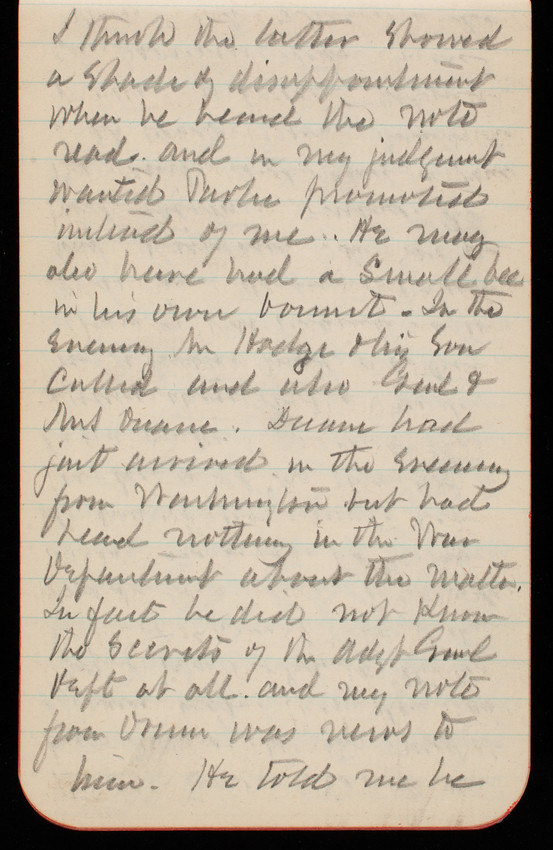 I think the latter showed
a shade of disappointment
when he heard the note
read. and in my judgment
wanted Parke promoted
instead of me. He may
also have had a small bee
in his own bonnet. In the
Evening Mr Hodge & his son
called and also Genl &
Mrs Duane. Duane had
just arrived in the Evening
from Washington but had
heard nothing in the War
Department about the matter.
In fact he did not know
the secrets of the Adjt Genl
Dept at all. and my note
from was news to
him. He told me he